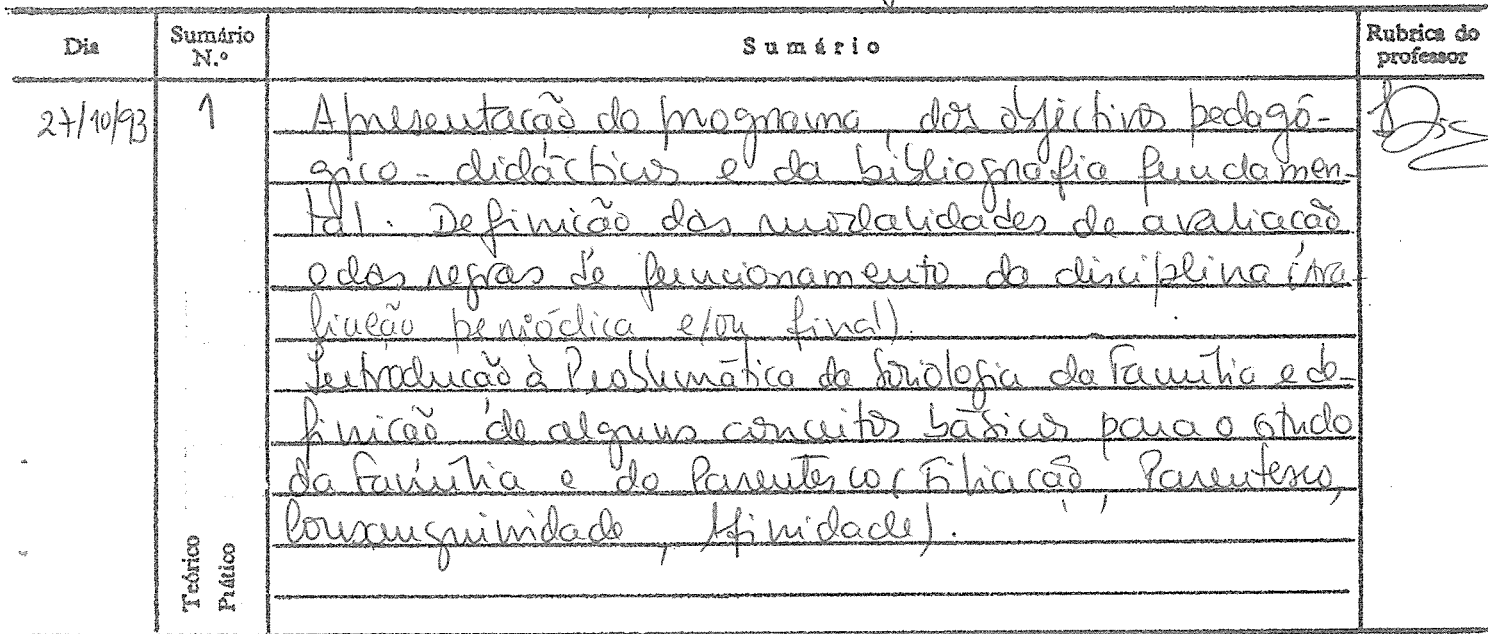 Dia Sumário N.º Sumário Rubrica do professor
27/10/93 1 Apresentação do programa, dos objectivos pedagó-
gico-didácticos e da bibliografia fundamen-
tal. Definição das modalidades de avaliação
e das regras de funcionamento da disciplina (ava-
liação periódica e/ou final).
Introdução à Problemática da Sociologia da Família e de-
finição de alguns conceitos básicos para o estudo
da Família e do Parentesco (Filiação, Parentesco,
Consanguinidade, Afinidade).
Teórico
Prático